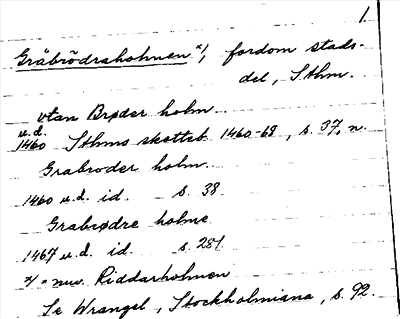 1.
Gråbrödraholmen x), fordom stads-
del, Sthm.
utan Brøder holm
u.d.
1460 Sthms skatteb. 1460-68, s. 37, n.
Grabroder holm.
1460 u.d. id. s. 38
Grabrødre holme
1467 u.d. id. s. 281
x) = nuv. Riddarholmen
Se Wrangel, Stockholmiana, s. 92.